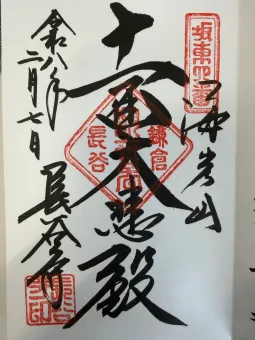 坂東四番
海光山
十一面大悲殿
鎌倉
長谷
令和八年
二月七日
長谷寺